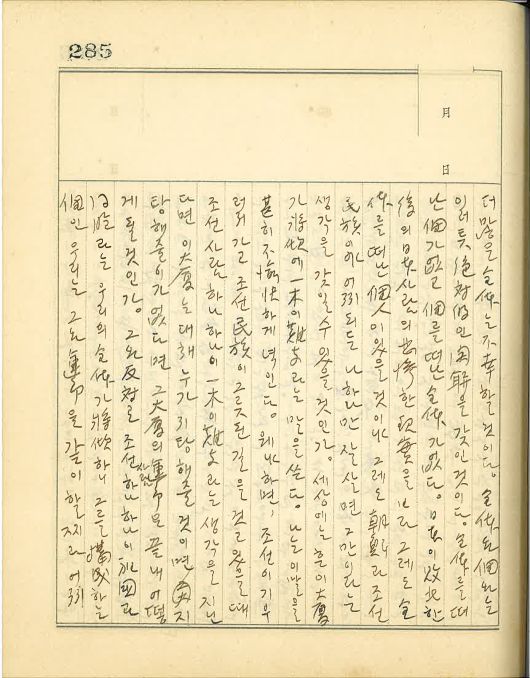 285
月
日
더 많은 全体는 不幸할 것이다. 全体와 個와는
있어 못 絶対的인 関解를 갖인 것이다. 全体를 떠
난 個가 없고 個를 떠난 全体가 없다. 日本이 敗北한
後의 日本사람의 悲惨한 現実을 보라 그래도 全
体를 떠난 個人이 있을 것이냐 그래도 朝鮮과 조선
民族이야 어찌되든 나 하나만 잘 살면 그만이라는
생각을 갖일 수 있을 것인가. 세상에는 흔이 大厦
가 将次에 一木이 難支라는 말을 쓴다. 나는 이 말을
甚히 不愉快하게 녁인다. 왜냐하면, 조선이 기우
러 가고 조선民族이 그릇된 길을 것고 있을 때
조선사람 하나하나이 一木이 難支라는 생각을 지닌
다면 이 大厦는 대체 누가 지탕해 줄 것이며 지
탕해 줄 이가 없다면 그 大厦의 運命은 끝내 어떻
게 될 것인가. 그와 反対로 조선사람 하나하나이 祖国과
同胞라는 우리의 全体가 将次 하나 그를 構成하는
個인 우리는 그와 運命을 같이 할지라 어찌